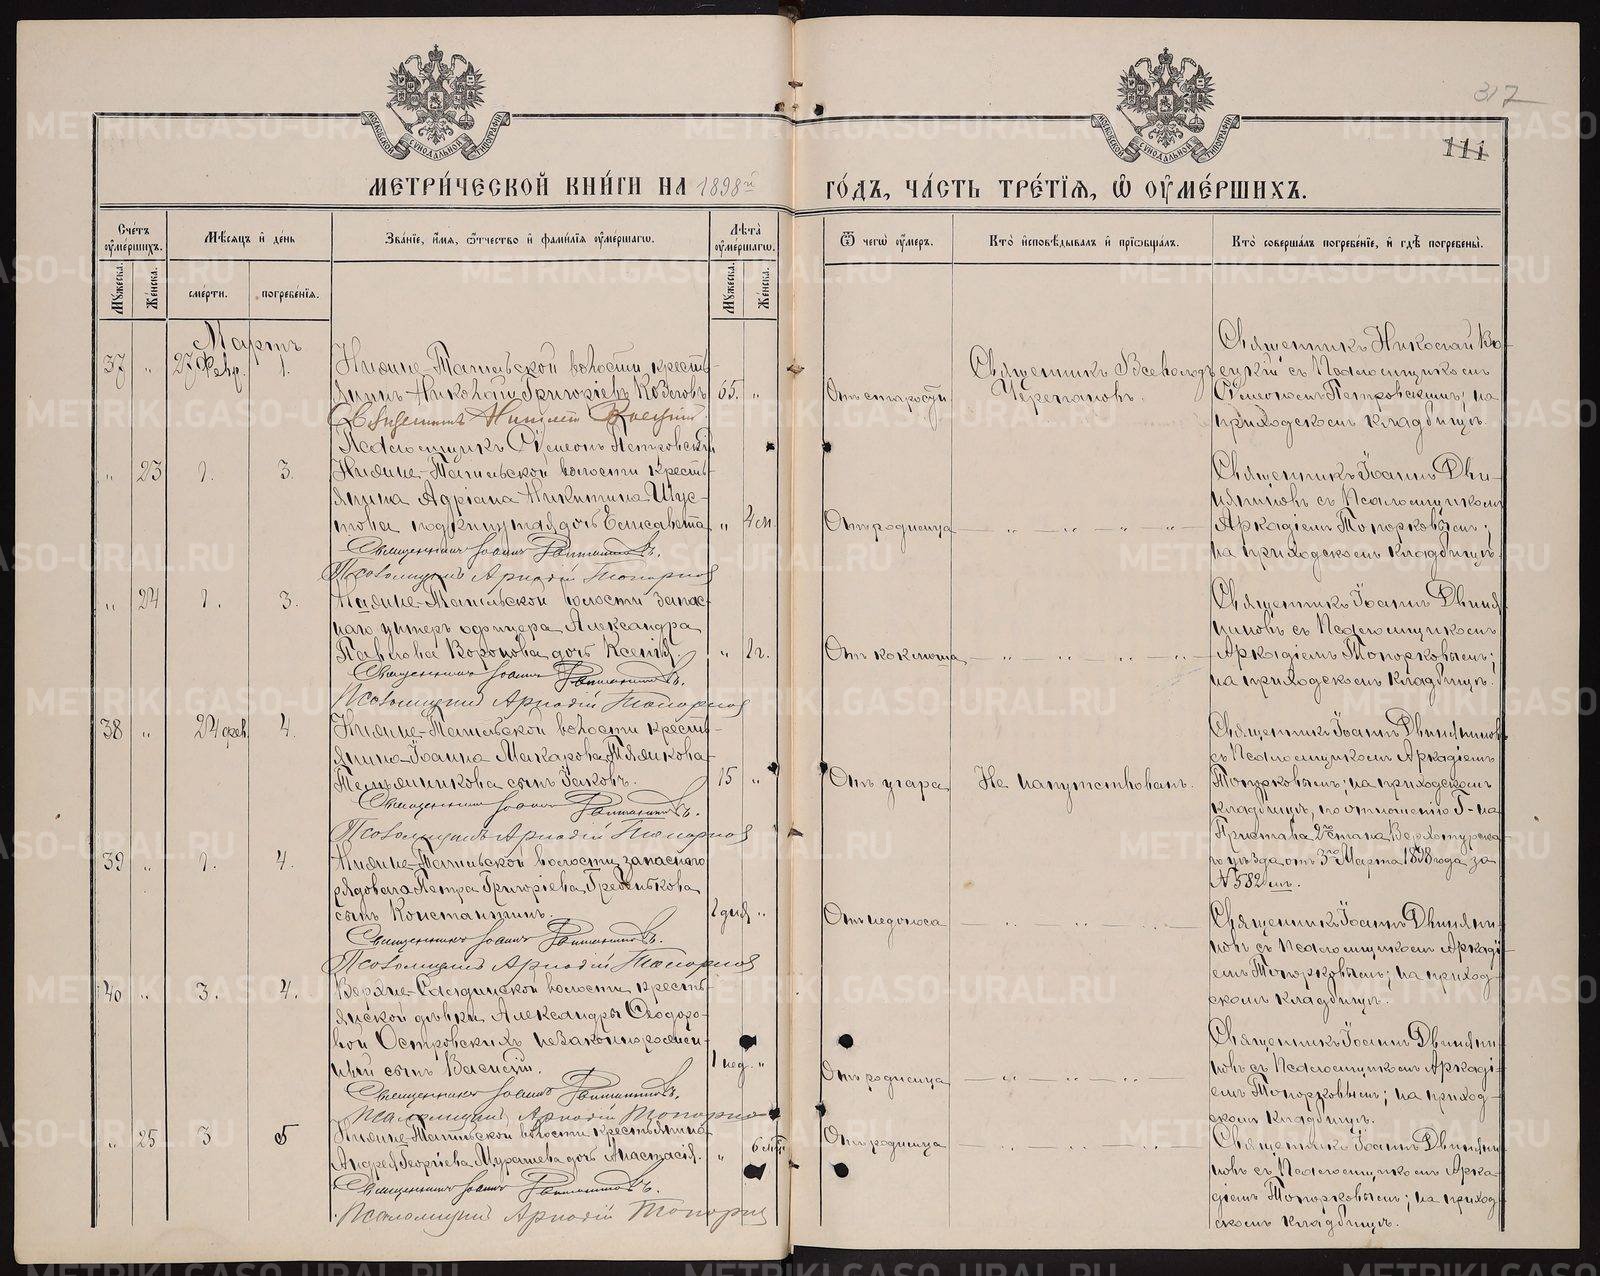 317
111
МОСКОВСКОЙ СѴНОДАЛЬНОЙ ТИПОГРАФІИ
МОСКОВСКОЙ СѴНОДАЛЬНОЙ ТИПОГРАФІИ
МЕТРИ́ЧЕСКОЙ КНИ́ГИ НА 1898й
ГО́ДЪ, ЧА́СТЬ ТРЕ́ТЇѦ, Ѽ ОУ҆МЕ́РШИХЪ.
Сче́тъ оу҆ме́ршихъ.
Мꙋ́жеска.
Же́нска.
Мѣ́сяцъ и҆ де́нь
сме́рти.
погребе́нїѧ.
Зва́нїе, и҆́мѧ, ѻ҆́тчество и҆ фами́лїѧ оу҆ме́ршагѡ.
Лѣ́та оу҆ме́ршагѡ.
Мꙋ́жеска.
Же́нска.
Ѿ чегѡ̀ оу҆́меръ.
Кто̀ и҆сповѣ́дывалъ и҆ прїѡбща́лъ.
Кто̀ соверша́лъ погребе́нїе, и҆ гдѣ̀ погребены̀.
Мартъ
37 " 27 Февр. 1.
Нижне-Тагильской волости кресть-
янинъ Николай Григоріевъ Козловъ 65. "
Священникъ Николай
Псаломщикъ Симеонъ Петровскій
Отъ старости
Священникъ Всеволодъ
Черепановъ.
Священникъ Николай
съ Псаломщикомъ
Симеономъ Петровскимъ; на
приходскомъ кладбищѣ.
" 23 1. 3.
Нижне-Тагильской волости кресть-
янина Адріана Никитина Шус-
това подкинутая дочь Елисавета " 4 м.
Священникъ Іоаннъ
Псаломщикъ Аркадій Топорков
Отъ родимца
Священникъ Іоаннъ Дви-
няниновъ съ Псаломщикомъ
Аркадіемъ Топорковымъ;
на приходскомъ кладбищѣ.
" 24 1. 3.
Нижне-Тагильской волости запас-
наго унтеръ офицера Александра
Павлова Воронова дочь Ксенія. " 2 г.
Священникъ Іоаннъ
Псаломщикъ Аркадій Топорков
Отъ коклюша
Священникъ Іоаннъ Двиня-
ниновъ съ Псаломщикомъ
Аркадіемъ Топорковымъ;
на приходскомъ кладбищѣ.
38 " 24 фев. 4.
Нижне-Тагильской волости кресть-
янина Іоанна Макарова
сынъ Іаковъ. 15 "
Священникъ Іоаннъ
Псаломщикъ Аркадій Топорков
Отъ угара
Не напутствованъ.
Священникъ Іоаннъ Двиняниновъ
съ Псаломщикомъ Аркадіемъ
Топорковымъ; на приходскомъ
кладбищѣ, по отношенію Г-на
Пристава 2го стана Верхотурска-
го уѣзда отъ 3го Марта 1898 года за
№ 582 мъ.
39 " 1. 4.
Нижне-Тагильской волости запаснаго
рядоваго Петра Григоріева Гребенькова
сынъ Константинъ. 2 дня "
Священникъ Іоаннъ
Псаломщикъ Аркадій Топорков
Отъ недоноса
Священникъ Іоаннъ Двиняни-
новъ съ Псаломщикомъ Аркаді-
емъ Топорковымъ; на приход-
скомъ кладбищѣ.
40 " 3. 4.
Верхне-Салдинской волости кресть-
янской дѣвки Александры Ѳеодоро-
вой Островскихъ незаконнорожден-
ный сынъ Василій. 1 нед. "
Священникъ Іоаннъ
Псаломщикъ Аркадій Топорков
Отъ родимца
Священникъ Іоаннъ Двиняни-
новъ съ Псаломщикомъ Аркаді-
емъ Топорковымъ; на приход-
скомъ кладбищѣ.
" 25 3 5
Нижне-Тагильской волости крестьянина
Андрея Георгіева дочь Анастасія. " 6
Священникъ Іоаннъ
Псаломщикъ Аркадій Топорков
Отъ родимца
Священникъ Іоаннъ Двиняни-
новъ съ Псаломщикомъ Арка-
діемъ Топорковымъ; на приход-
скомъ кладбищѣ.
METRIKI.GASO-URAL.RU